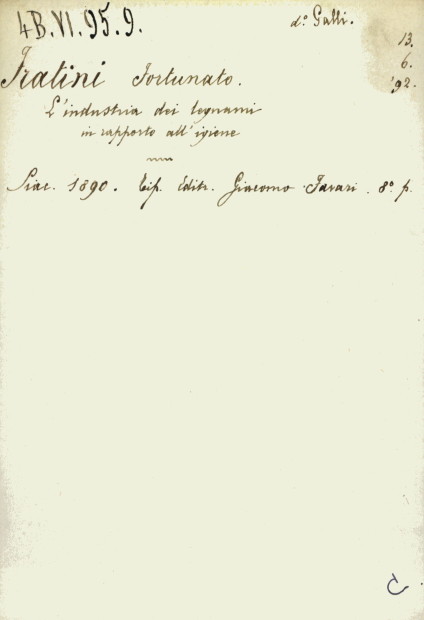 4B.VI.95.9.
d.º Galli.
13.
6.
'92.
Fratini Fortunato.
L'industria dei legnami
in rapporto all'igiene
Tip. Editr. Giacomo 8º p.
1890.
C